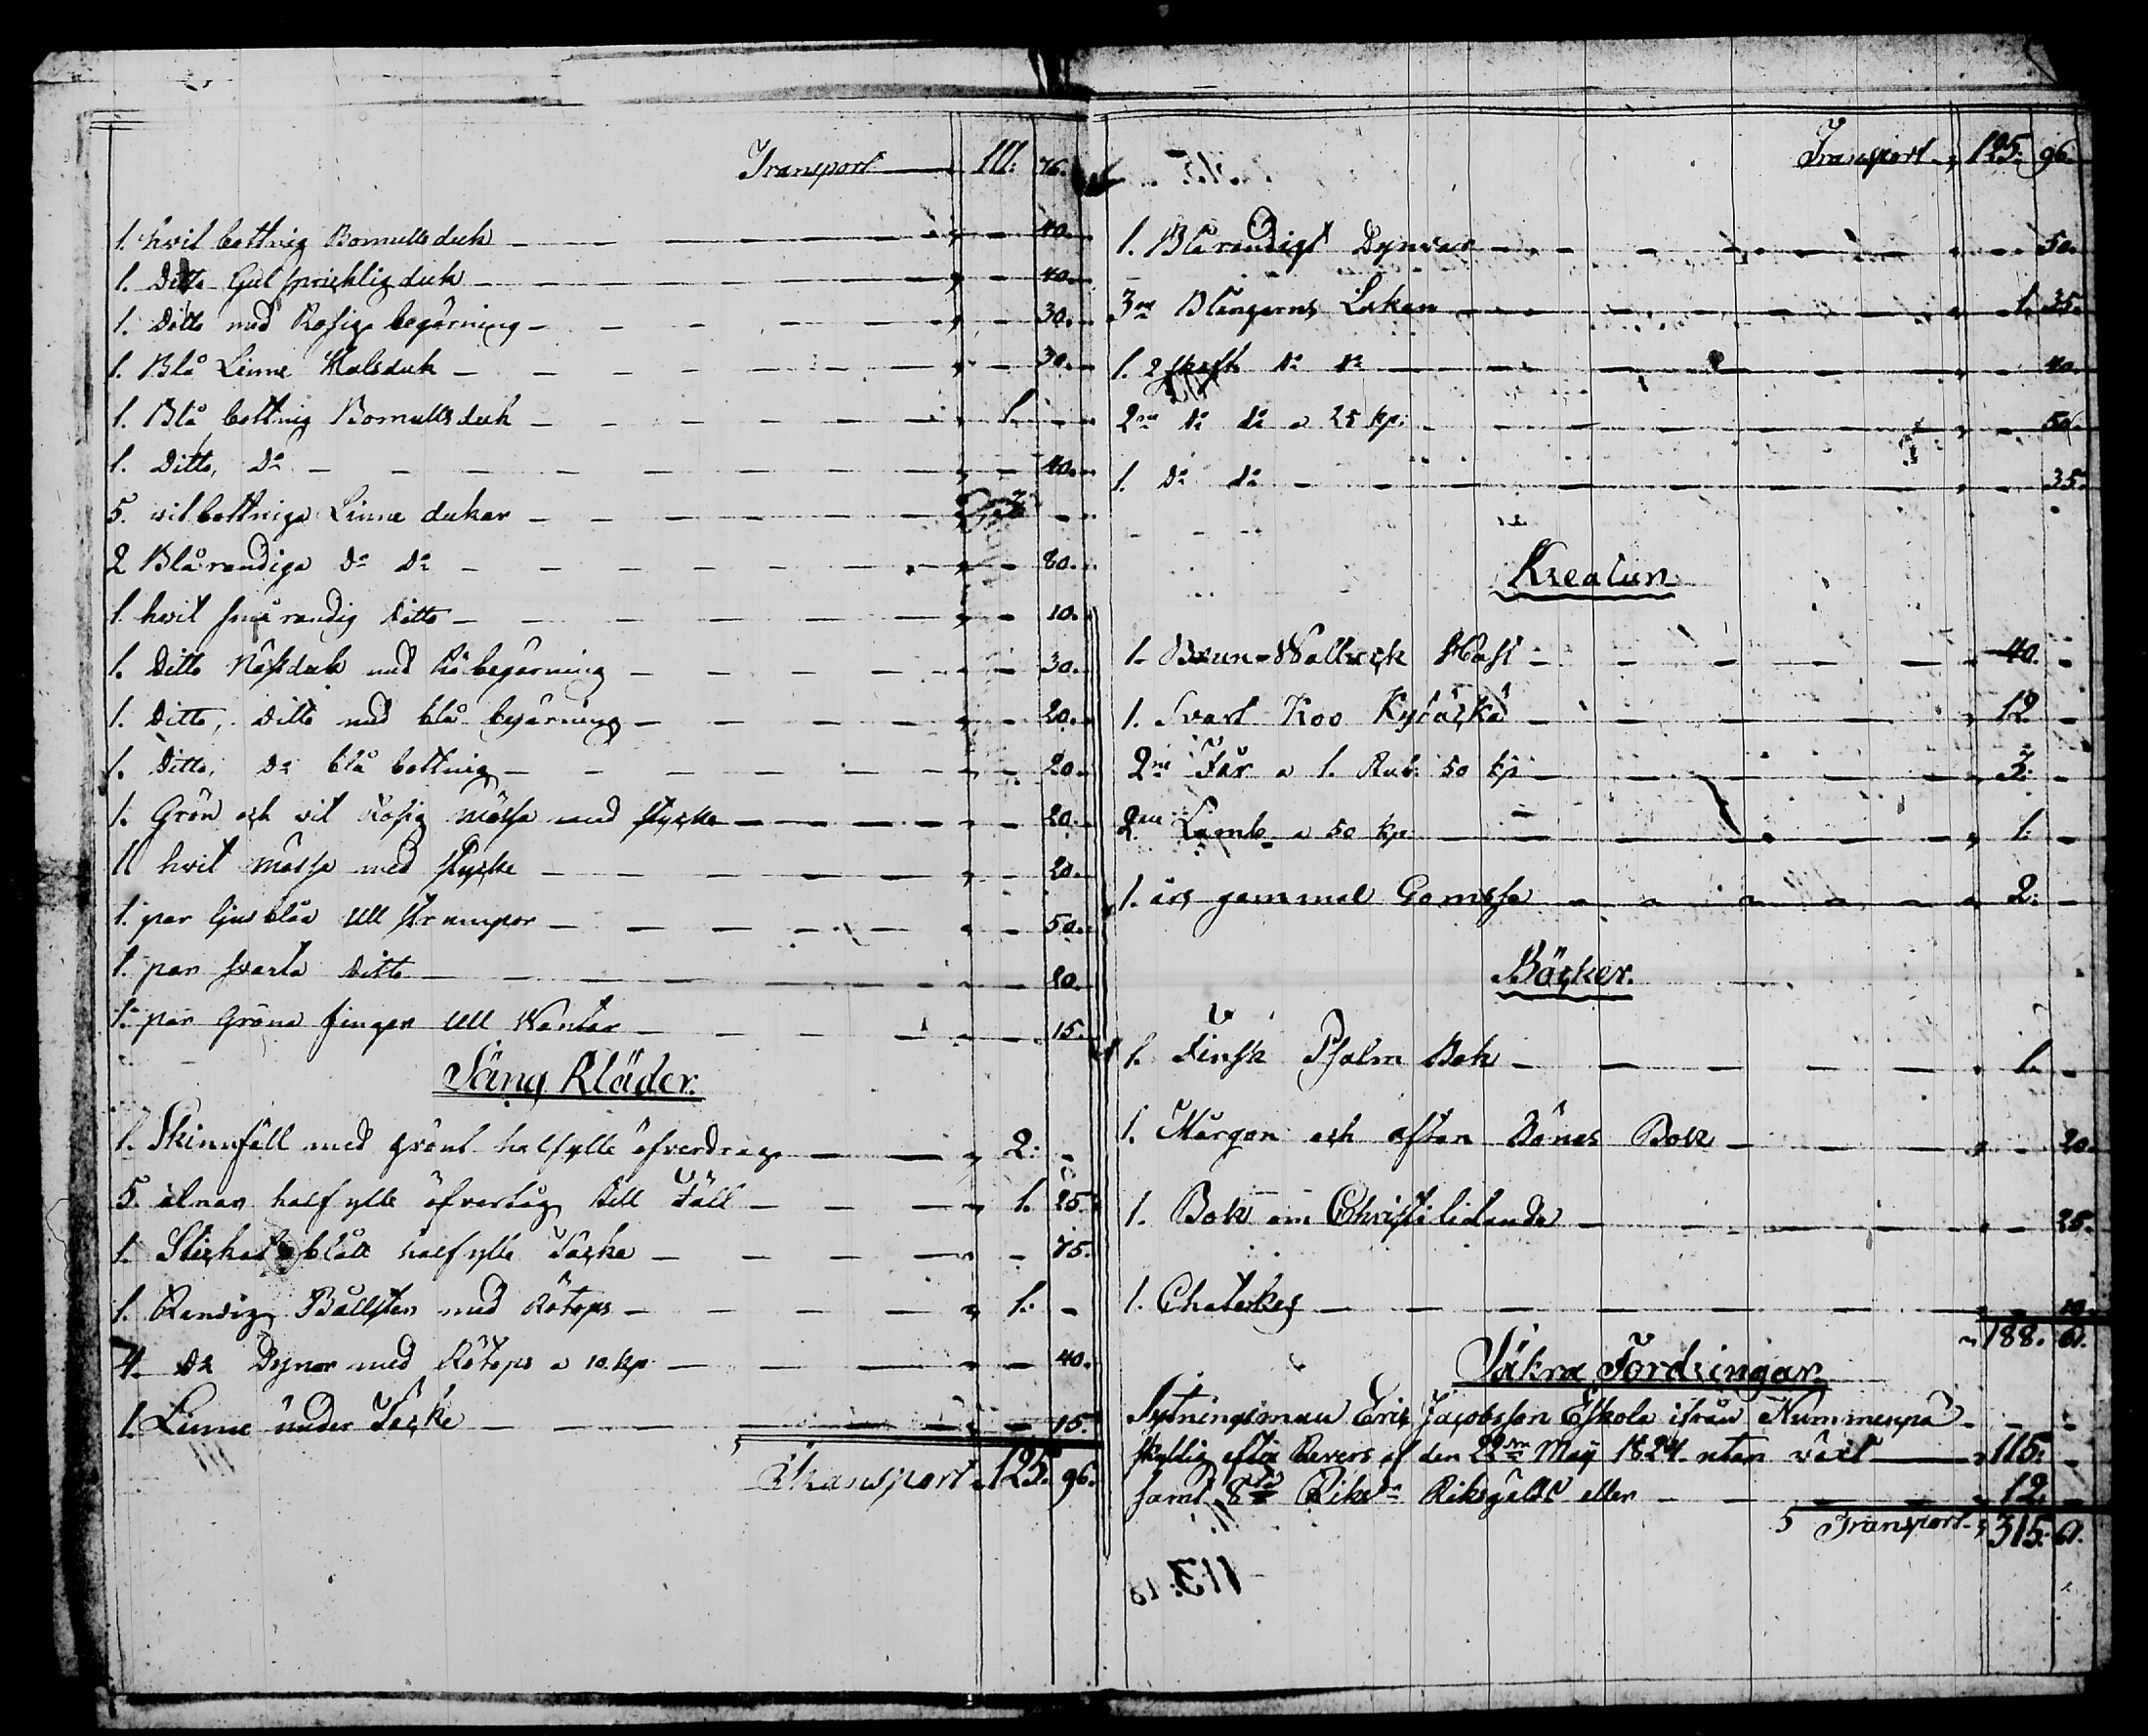 Transport 111. 76.
1. hvit bottnig Bomulls duk 40.
1. Ditto Gul sprichlig duk 40.
1. Ditto med Rosig begärning 30.
1. Blå Linne Halsduk 30.
1. Blå bottnig Bomulls duk 1.
1. Ditto, Do 40.
5. vit bottniga Linne dukar
2 Blårandiga Do Do 80.
1. hvit små randig Ditto 10.
1. Ditto Näsduk med Rö begärning 30.
1. Ditto, Ditto med blå begärning 20.
1. Ditto, Do blå bottnig 20.
1. Grön och vit Rosig Mössa med stycke 20.
1 hvit Mössa med stycke 20.
1. par ljusblåa Ull strumpor 50.
1. par svarta Ditto 20.
1. par Gröna finger Ull Wantar 15.
Säng Kläder.
1. Skinnfäll med grönt halfylle öfverdrag 2.
5. alnar half ylle öfvertåg till Fäll 1. 25.
1. Stickat blått half ylle Täcke 75.
1. Randig Bållster med Rötops 1.
4. Do Dynor med Rötops a 10. kp 40.
1. Linne under Täcke 15.
Transport 125. 96.
Transport 125. 96.
1. Blårandigt Dynvar 50.
3ne Blångarns Lakan 1. 35.
1. 2 skaft do do 40.
2ne do do a 25 kp: 50.
1. Do do 35.
Kreatur
1. Brun Wallack Häst 40.
1. Svart Koo 12
2ne Får a 1. Rub: 50 kp 3.
2ne Lamb a 50 kp 1.
1. års gammal Gomsse 2.
Böcker.
1. Finsk Psalm Bok 1.
1. Mårgon och afton Böne Bok 20.
1. Bok om Christi lidande 25.
1. Chatekes 10.
188. 61.
Säkra Fordringar
Sytningsman Eric Jacobsson Eskola ifrån Nummenpä
skyllig efter Revers af den 22 May 1824. utan växt 115.
samt 8 Riksdr Riksgälds eller 12.
Transport 315. 61.